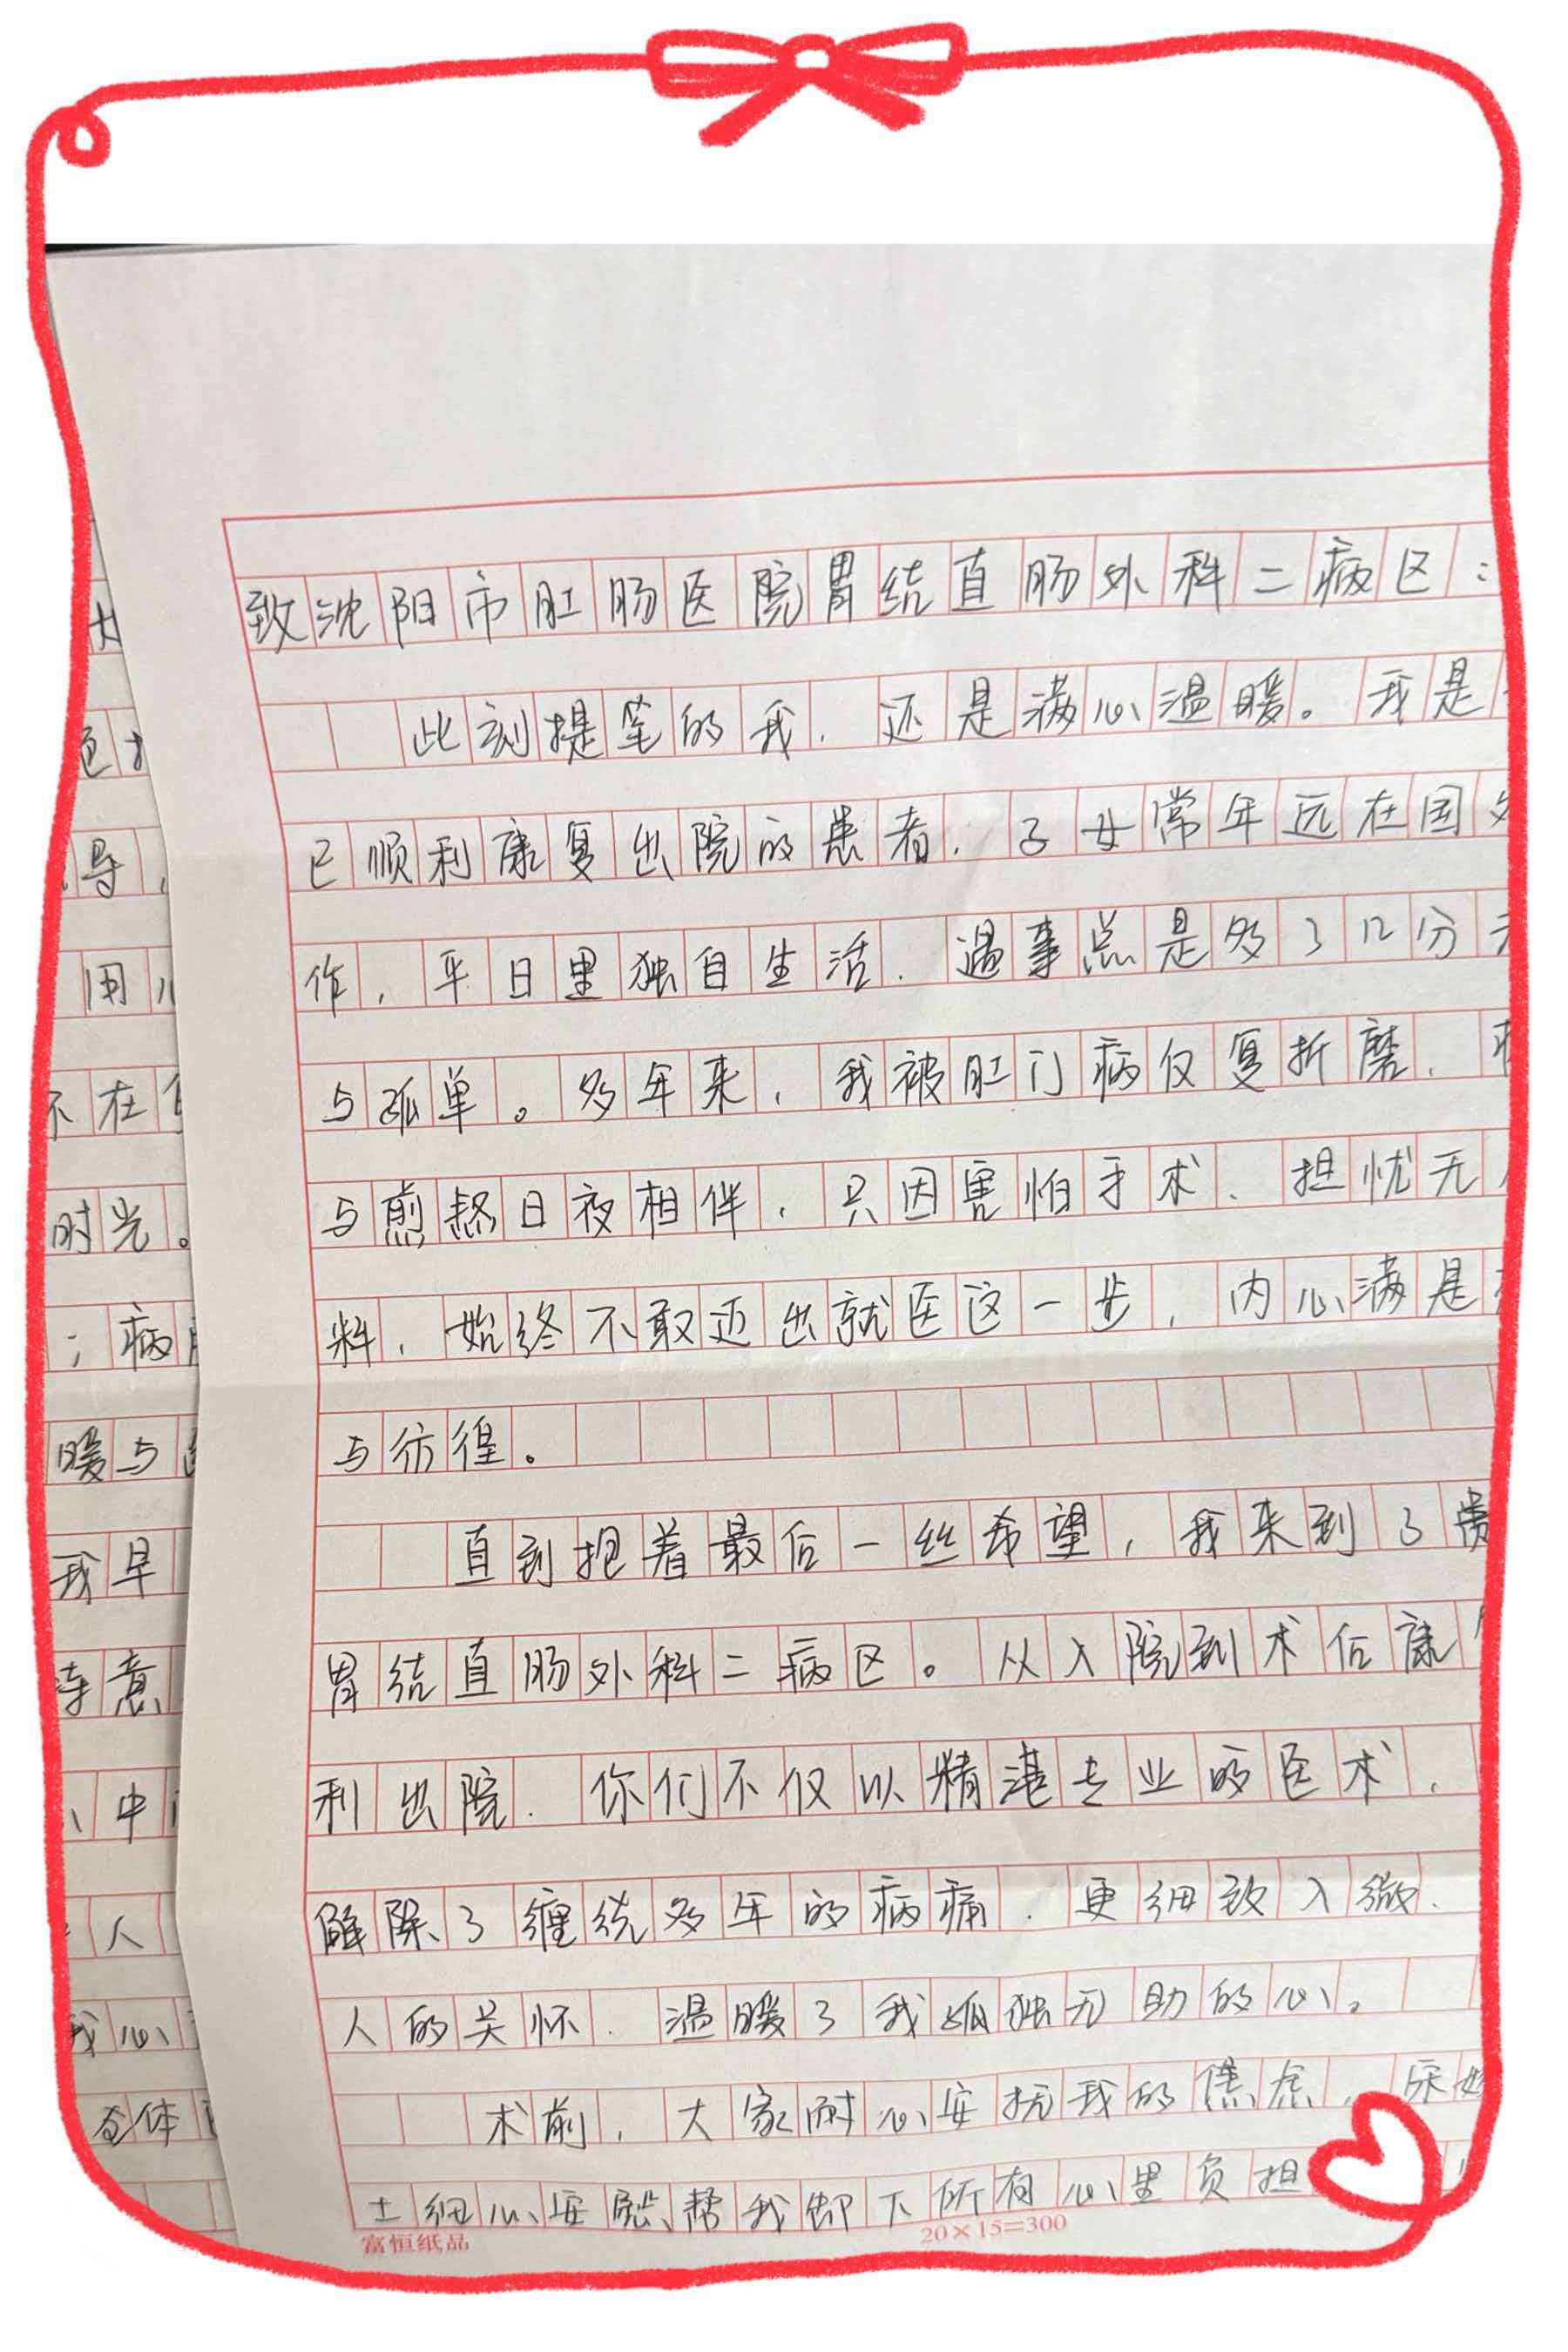 致沈阳市肛肠医院胃结直肠外科二病区：
此刻提笔的我，还是满心温暖。我是
已顺利康复出院的患者，子女常年远在国
作，平日里独自生活，遇事总是多了几分
与孤单。多年来，我被肛门病反复折磨，
与煎熬日夜相伴，只因害怕手术、担忧无
料，始终不敢迈出就医这一步，内心满是
与彷徨。
直到抱着最后一丝希望，我来到了贵
胃结直肠外科二病区。从入院到术后康
利出院，你们不仅以精湛专业的医术，
解除了缠绕多年的病痛，更细致入微、
人的关怀，温暖了我孤独无助的心。
术前，大家耐心安抚我的焦虑，宋
士细心安慰、帮我卸下所有心里负担
富恒纸品
20×15=300
导，
用
不在
时光。
；病
暖与
我早
待意
、中
人
我心
全体